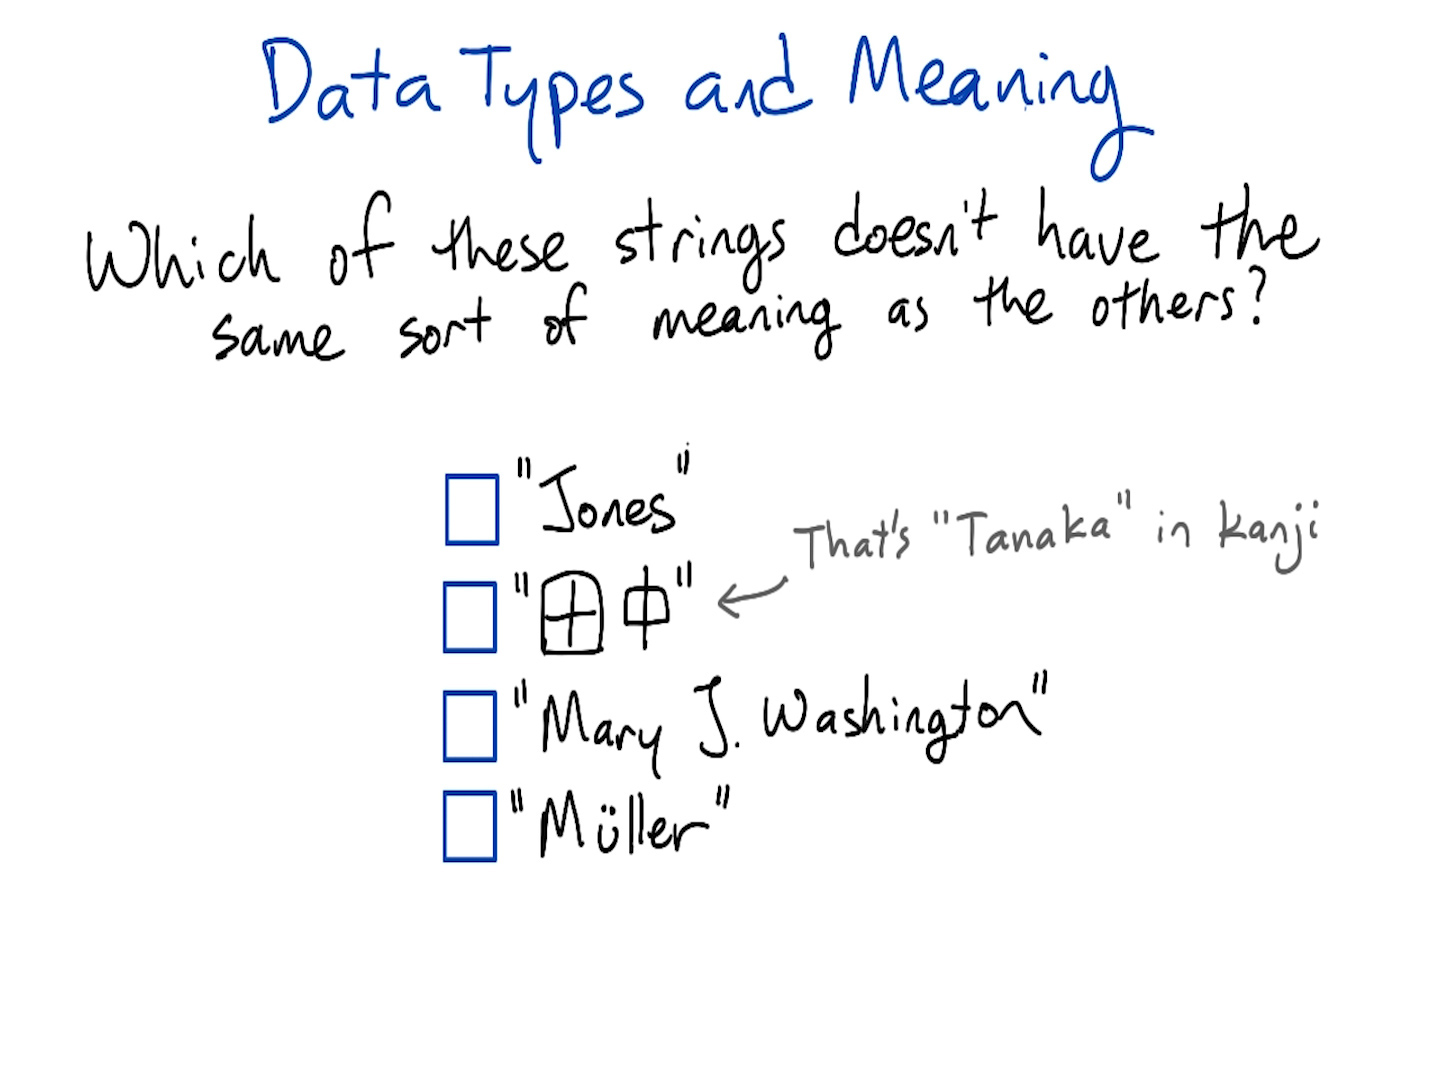 Data Types and Meaning
Which of these strings doesn't have the
same sort of meaning as the others?
"Jones"
That's "Tanaka" in kanji
"田中"
"Mary J. Washington"
"Müller"